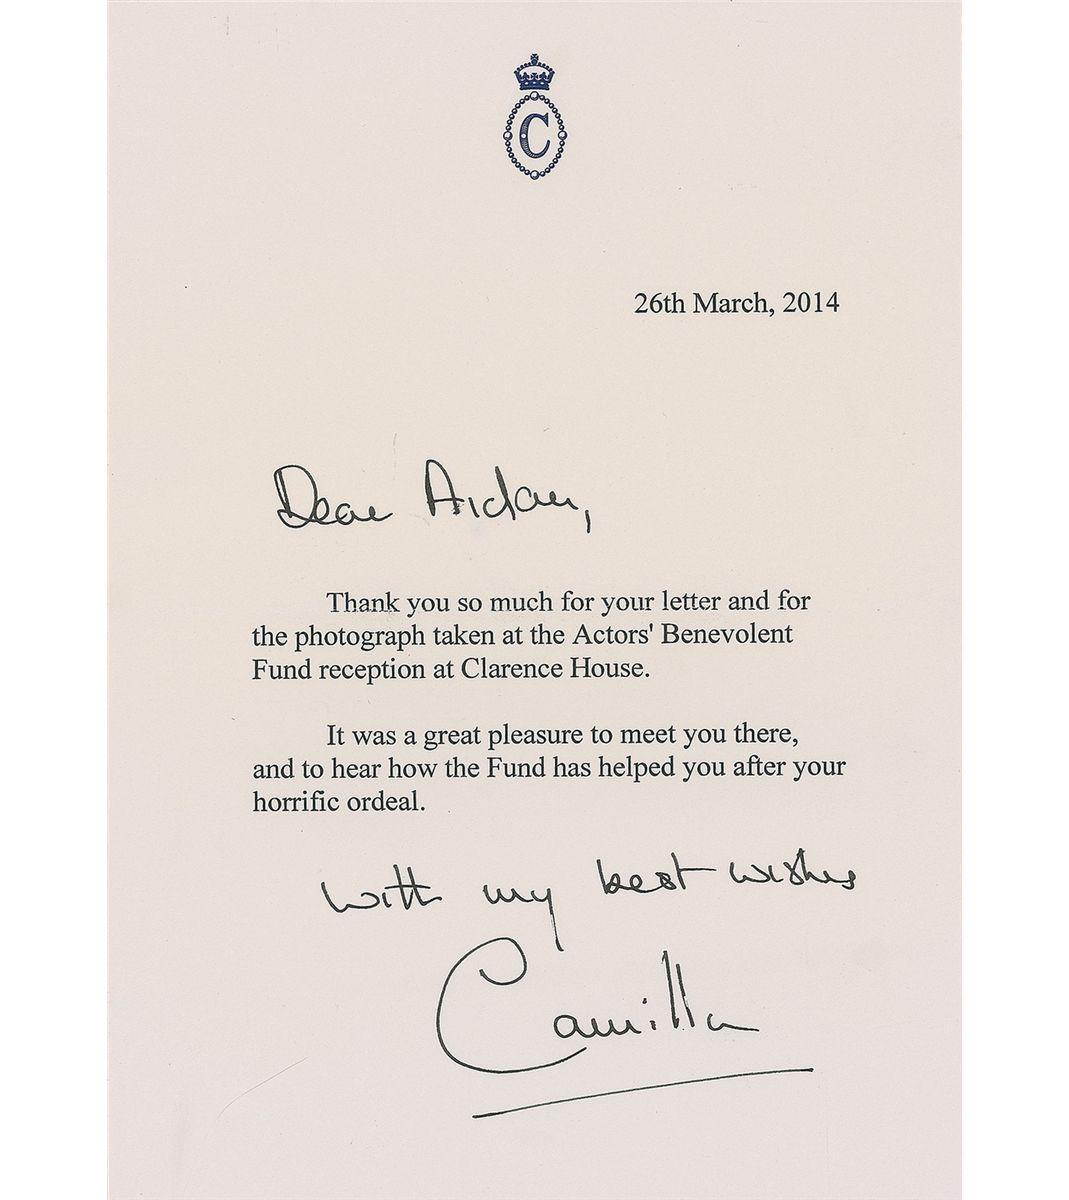 C
26th March, 2014
Dear Aidan,
Thank you so much for your letter and for
the photograph taken at the Actors' Benevolent
Fund reception at Clarence House.
It was a great pleasure to meet you there,
and to hear how the Fund has helped you after your
horrific ordeal.
with my best wishes
Camilla